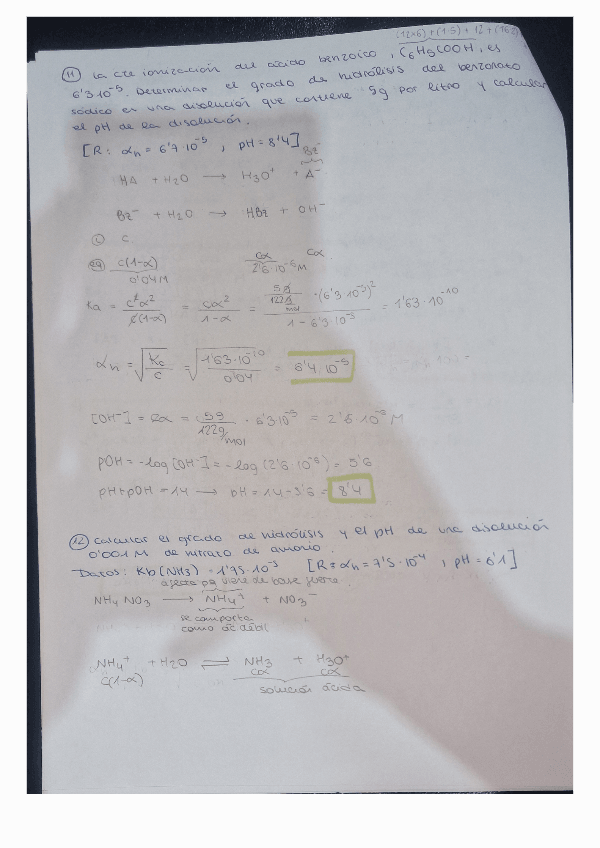 (12×6) + (1·5) + 12 + (16·2)
11) La cte ionización del ácido benzoico, C6H5COOH, es
6'3·10⁻⁵. Determinar el grado de hidrólisis del benzoato
sódico en una disolución que contiene 5g por litro y calcular
el pH de la disolución.
[R: αh = 6'7·10⁻⁵, pH = 8'4]
Bz⁻
HA + H2O → H3O⁺ + A⁻
Bz⁻ + H2O → HBz + OH⁻
(i) c
(eq) c(1-α) cα cα
0'04M 2'6·10⁻⁶ M
Ka = c²α² / c(1-α) = cα² / 1-α = 5g / 122g/mol · (6'3·10⁻⁵)² / 1 - 6'3·10⁻⁵ = 1'63·10⁻¹⁰
αh = √Kc / c = √1'63·10⁻¹⁰ / 0'04 = 6'4·10⁻⁵
[OH⁻] = cα = 5g / 122g/mol · 6'3·10⁻⁵ = 2'6·10⁻⁶ M
pOH = -log [OH⁻] = -log (2'6·10⁻⁶) = 5'6
pH+pOH = 14 → pH = 14 - 5'6 = 8'4
12) Calcular el grado de hidrólisis y el pH de una disolución
0'001 M de nitrato de amonio.
Datos: Kb(NH3) = 1'75·10⁻⁵ [R: αh = 7'5·10⁻⁴, pH = 6'1]
viene de base fuerte
NH4NO3 → NH4⁺ + NO3⁻
se comporta
como ác débil
NH4⁺ + H2O ⇌ NH3 + H3O⁺
c(1-α) cα cα
solución ácida